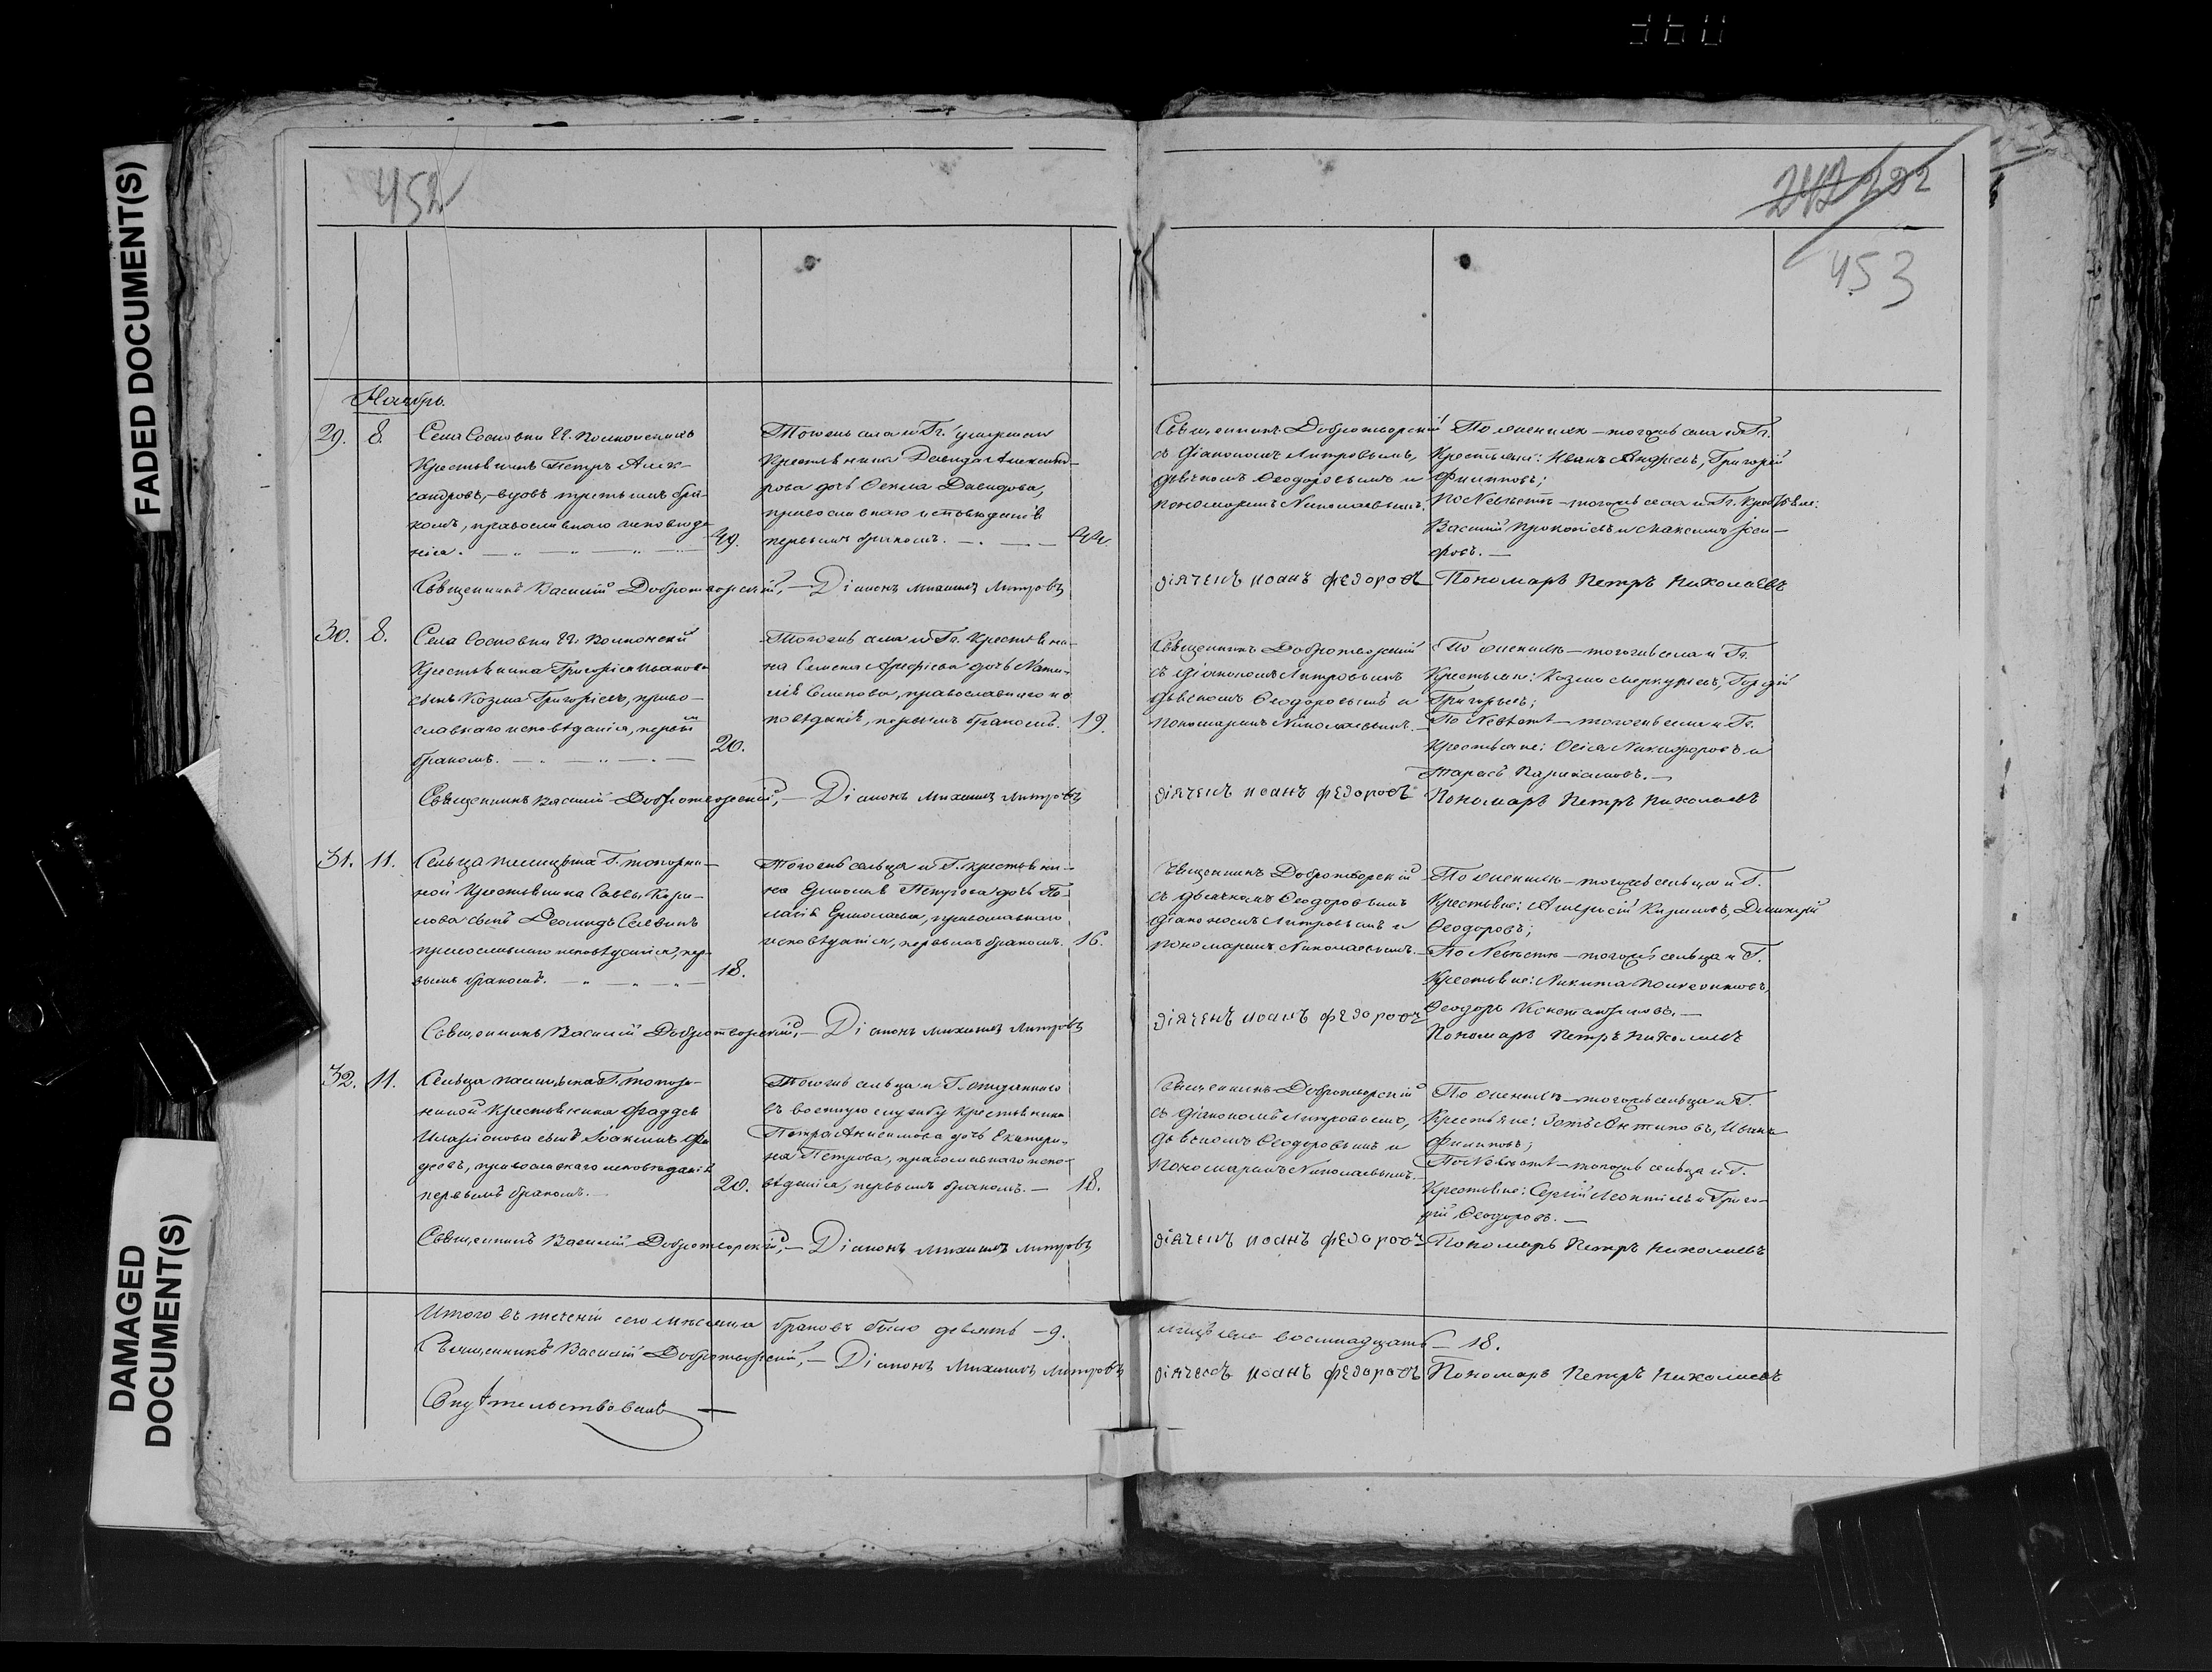 452
242 282
453
Ноябрь.
29. 8. Села Сосновки Гг. Волконскихъ
Крестьянинъ Петръ Алек-
сандровъ, вдовъ третьимъ бра-
комъ, православнаго исповѣда-
нія. 49.
Тогожъ села и Гг. умершаго
Крестьянина Давида Александ-
рова дочь Фекла Давидова,
православнаго исповѣданія
первымъ бракомъ. 44
Священникъ Добротворскій
съ діакономъ Митровымъ,
дьячкомъ Ѳеодоровымъ и
пономаремъ Николаевымъ.
По женихѣ – тогожъ села и Гг.
Крестьяне: Иванъ Андреевъ, Григорій
Филиповъ;
по Невѣстѣ – тогожъ села и Гг. Крестьяне:
Василій Прокопіевъ и Максимъ Іоси-
фовъ.
Священникъ Василій Добротворскій, – Діаконъ Михаилъ Митровъ
Діячекъ Иоанъ Федоровъ Пономарь Петръ Николаевъ
30. 8. Села Сосновки Гг. Волконскихъ
Крестьянина Григорія Иванова
сынъ Козма Григорьевъ, право-
славнаго исповѣданія, первымъ
бракомъ. 20.
Тогожъ села и Гг. Крестьяни-
на Семена дочь Ната-
лія Семенова, православнаго ис-
повѣданія, первымъ бракомъ. 19.
Священникъ Добротворскій
съ діакономъ Митровымъ
дьячкомъ Ѳеодоровымъ и
Пономаремъ Николаевымъ.
По женихѣ – тогожъ села и Гг.
Крестьяне: Козма Меркурьевъ, Гордѣй
Григорьевъ;
По Невѣстѣ – тогожъ села и Гг.
Крестьяне: Никифоровъ и
Тарасъ
Священникъ Василій Добротворскій, – Діаконъ Михаилъ Митровъ
Діячекъ Иоанъ Федоровъ Пономарь Петръ Николаевъ
31. 11. Сельца Г. Топорни-
ной Крестьянина Саввы Кири-
лова сынъ Деомидъ Саввинъ
православнаго исповѣданія, пер-
вымъ бракомъ. 18.
Тогожъ сельца и Г. Крестьяни-
на Ермолая Петрова дочь Пе-
лагія Ермолаева, православнаго
исповѣданія, первымъ бракомъ. 16.
Священникъ Добротворскій
съ дьячкомъ Ѳеодоровымъ
діакономъ Митровымъ и
пономаремъ Николаевымъ.
По женихѣ – тогожъ сельца и Г.
Крестьяне: Кириловъ, Димитрій
Ѳеодоровъ;
По Невѣстѣ – тогожъ сельца и Г.
Крестьяне: Никита
Ѳеодоръ Константиновъ.
Священникъ Василій Добротворскій, – Діаконъ Михаилъ Митровъ
Діячекъ Иоанъ Федоровъ Пономарь Петръ Николаевъ
32. 11. Сельца Г. Топор-
ниной Крестьянина Фаддея
Иларіонова сынъ Іоакимъ Фа-
дѣевъ, православнаго исповѣданія
первымъ бракомъ. 20.
Тогожъ сельца и Г. отданнаго
въ военную службу крестьянина
Петра Анисимова дочь Екатери-
на Петрова, православнаго испо-
вѣданія, первымъ бракомъ. 18.
Священникъ Добротворскій
съ діакономъ Митровымъ,
дьячкомъ Ѳеодоровымъ и
Пономаремъ Николаевымъ.
По женихѣ – тогожъ сельца и Г.
Крестьяне: Зотъ Антиповъ, Иванъ
Филиповъ;
По Невѣстѣ – тогожъ сельца и Г.
Крестьяне: Сергѣй Леонтьевъ и Григо-
рій Ѳеодоровъ.
Священникъ Василій Добротворскій, – Діаконъ Михаилъ Митровъ
Діячекъ Иоанъ Федоровъ Пономарь Петръ Николаевъ
Итого въ теченіи сего мѣсяца браковъ было девять – 9. восмнадцать – 18.
Священникъ Василій Добротворскій, – Діаконъ Михаилъ Митровъ
Діячекъ Иоанъ Федоровъ Пономарь Петръ Николаевъ
Свидѣтельствовалъ
FADED DOCUMENT(S)
DAMAGED
DOCUMENT(S)